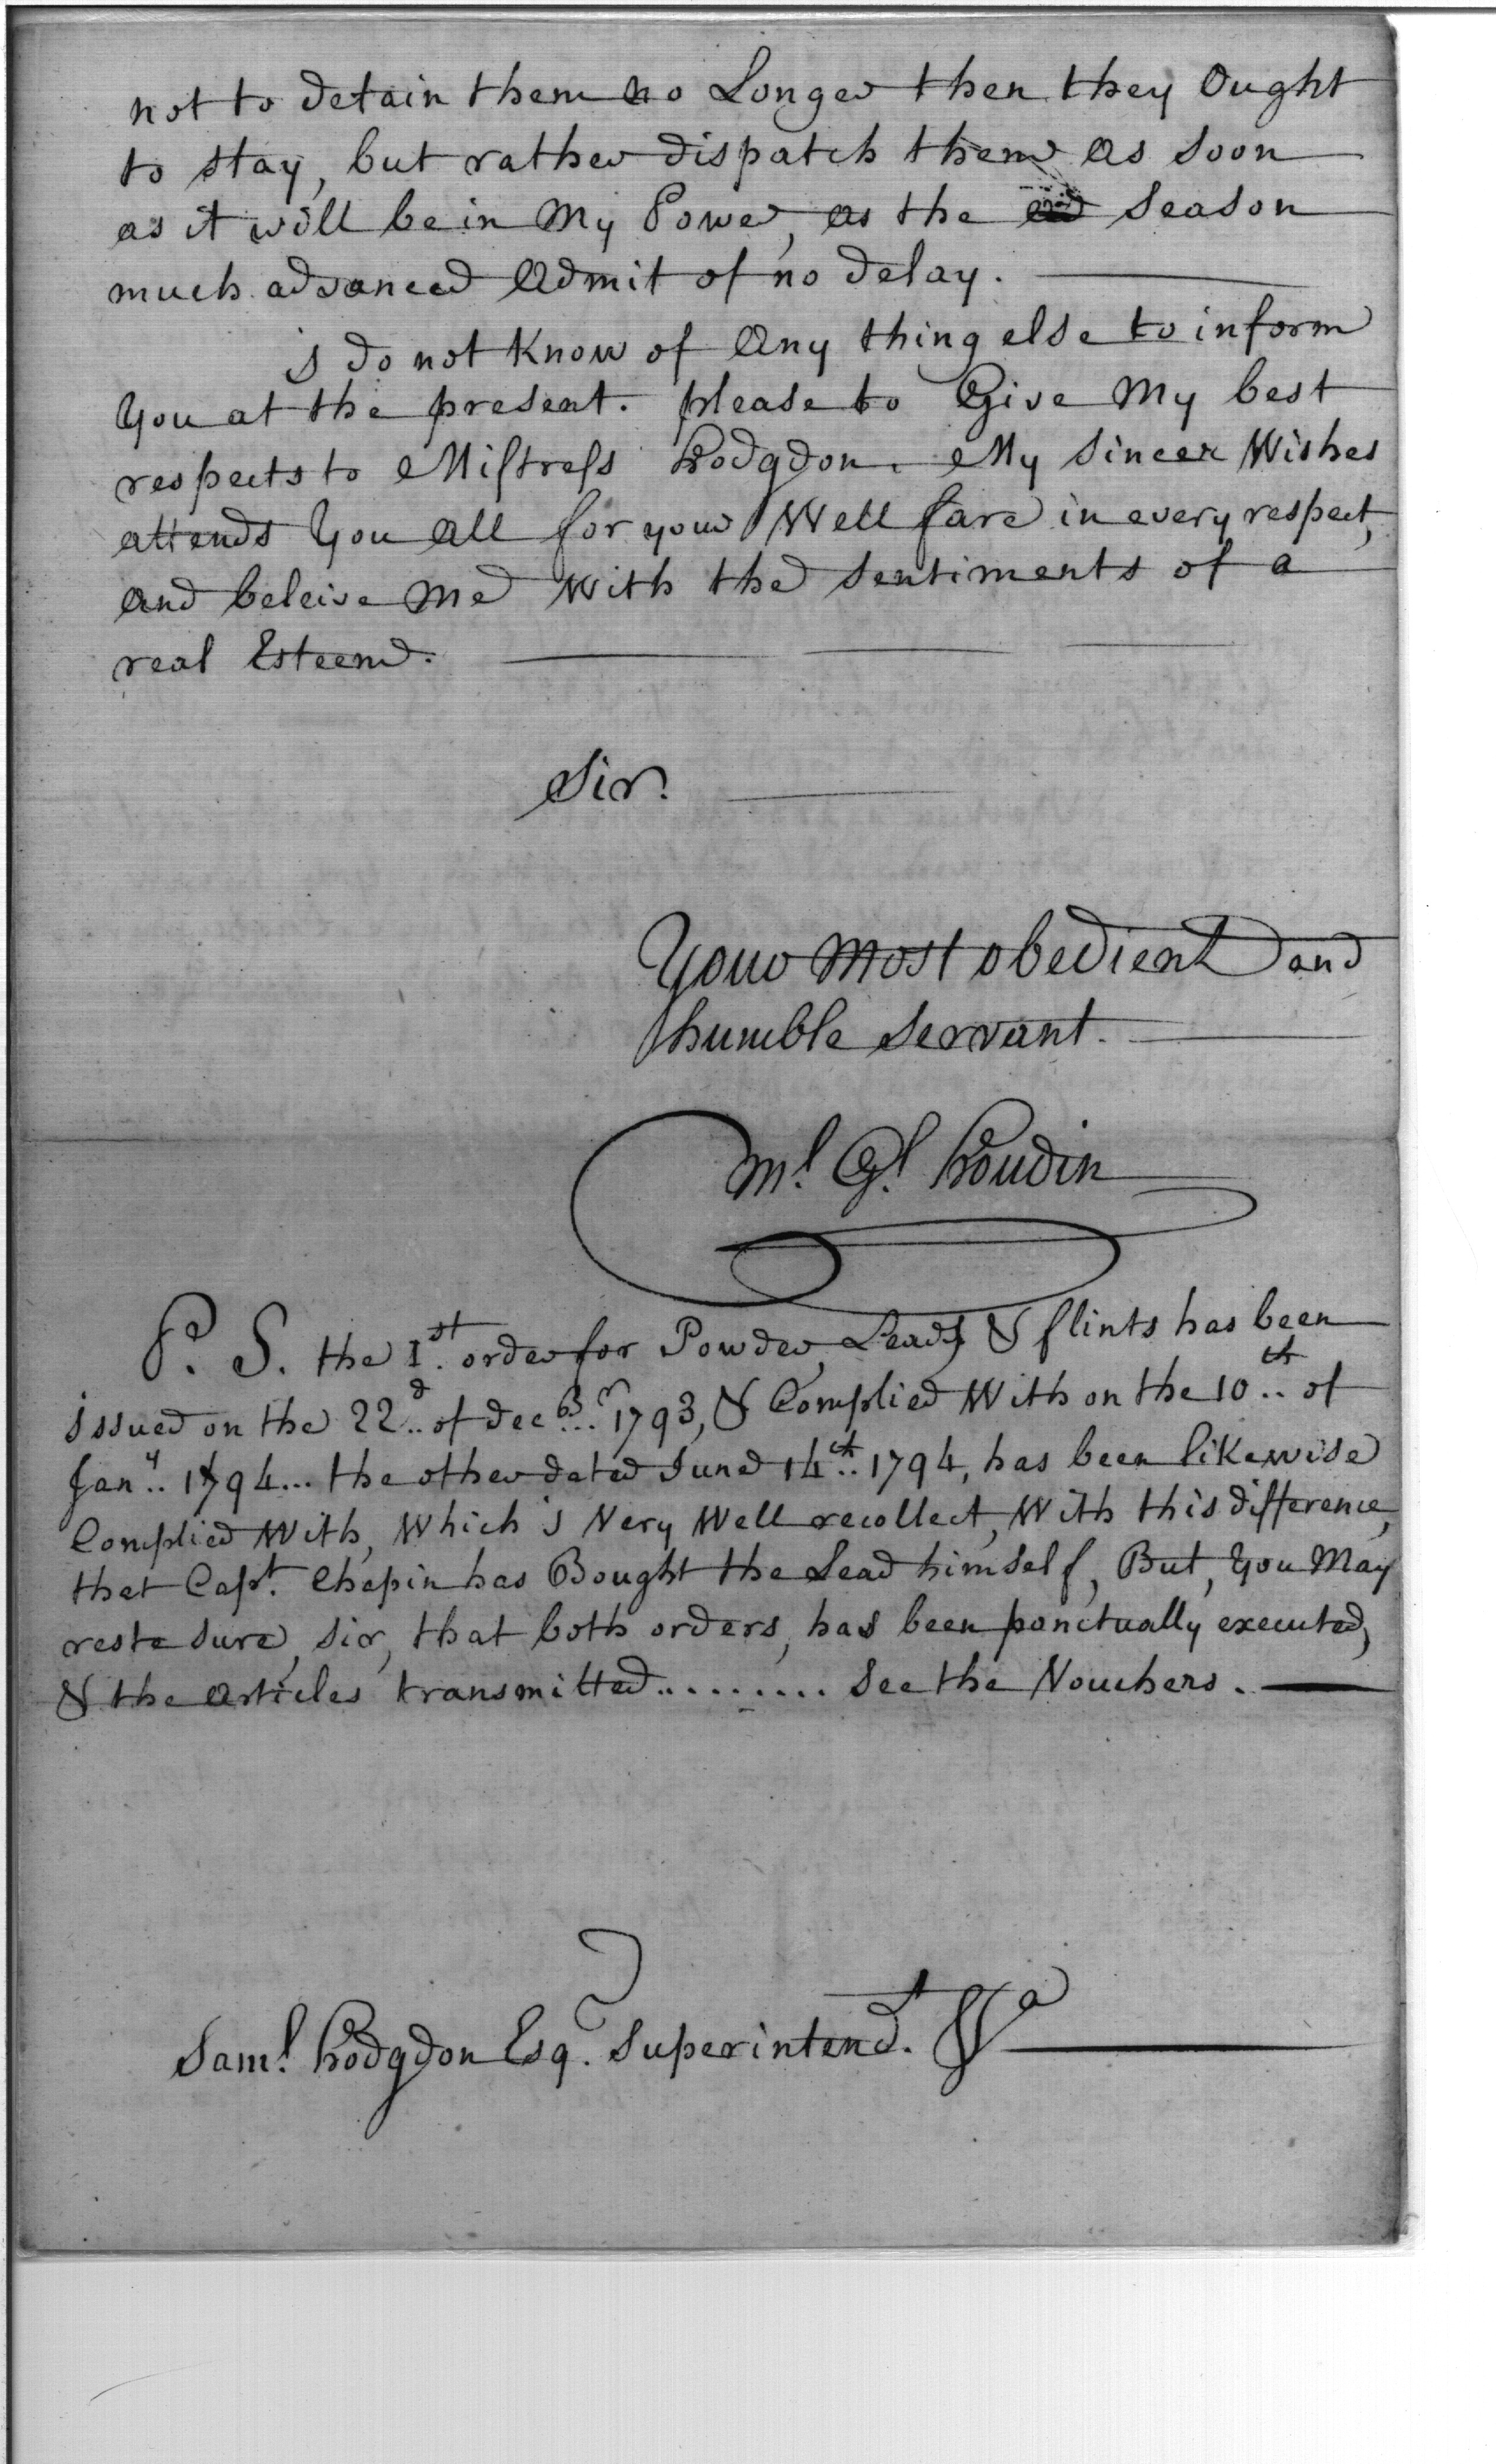 not to detain them no Longer then they Ought
to stay, but rather dispatch them as soon
as it will be in My Power, as the season
much advanced Admit of no delay.
i do not Know of Any thing else to inform
You at the present. please to Give My best
respects to Mistress hodgdon. My Sincer Wishes
attends You All for your Well fare in every respect,
and beleive Me With the sentiments of a
real Esteem.
Sir.
Your Most obedient and
humble servant.
Ml. Gl. houdin
P. S. the 1st. order for Powder, Lead, & flints has been
issued on the 22d.. of decbr... 1793, & Complied With on the 10th.. of
Jany.. 1794... the other dated June 14th.. 1794, has been likewise
Complied With, Which i Very Well recollect, With this difference,
that Capt. Chapin has Bought the Lead himself, But, You May
reste sure, sir, that both orders, has been ponctually executed,
& the articles transmitted......... See the Vouchers.
Saml. hodgdon Esqr. Superintendt. &a